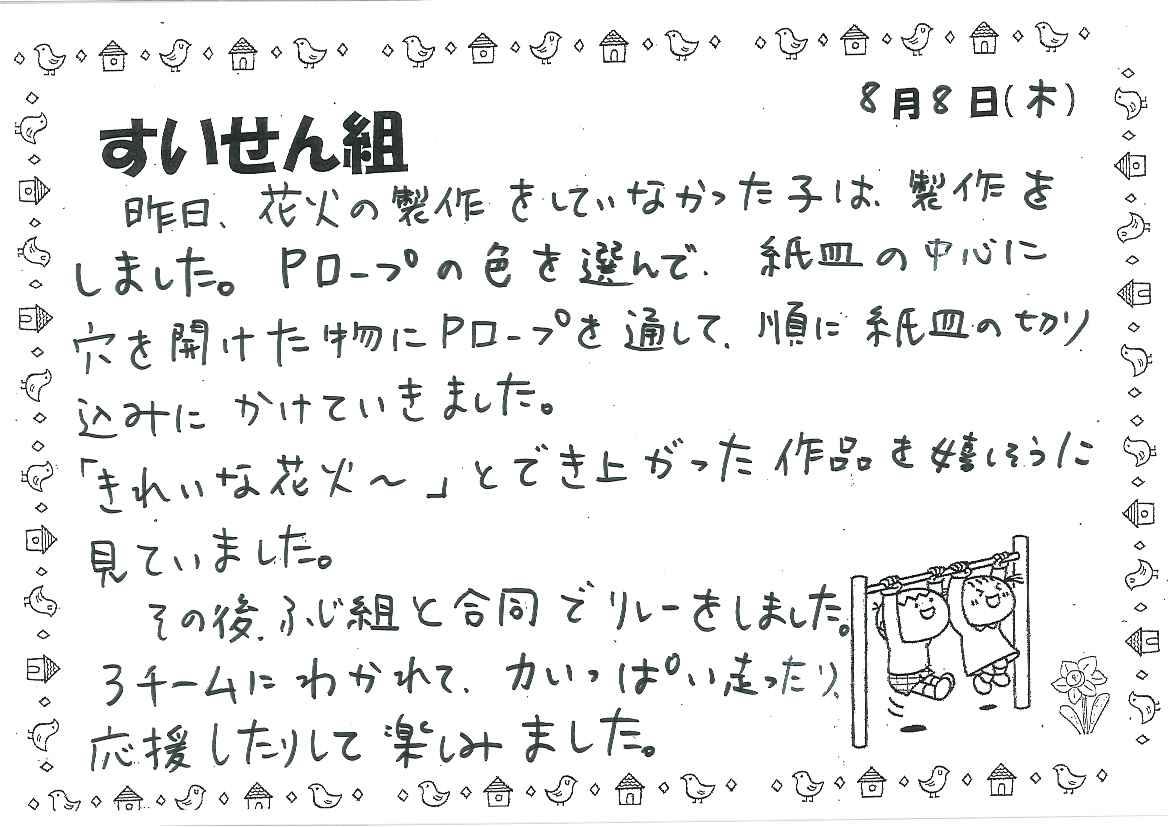 8月8日(木)
すいせん組
昨日、花火の製作をしていなかった子は、製作を
しました。Pロープの色を選んで、紙皿の中心に
穴を開けた物にPロープを通して、順に紙皿の切り
込みにかけていきました。
「きれいな花火～」とでき上がった作品を嬉しそうに
見ていました。
その後、ふじ組と合同でリレーをしました。
3チームにわかれて、力いっぱい走ったり、
応援したりして楽しみました。